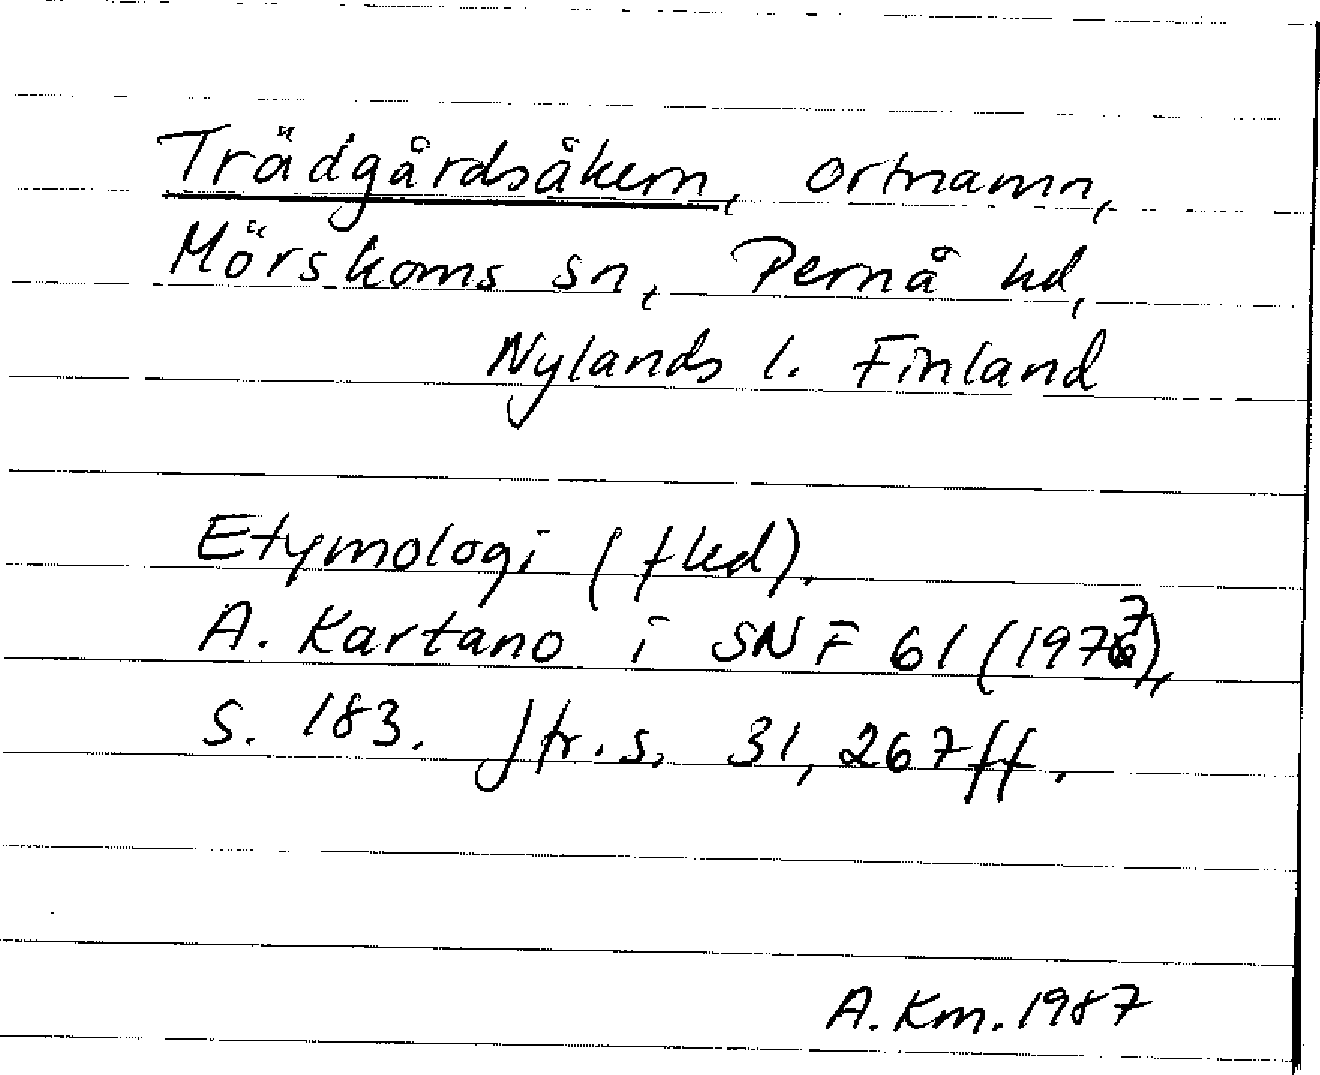 Trädgårdsåkern, ortnamn,
Mörskoms sn, Pernå hd,
Nylands l. Finland
Etymologi (fled).
A. Kartano i SNF 61 (1977),
S. 183. Jfr. s. 31, 267 ff.
A. Km. 1987